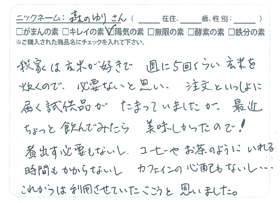 ニックネーム：森のゆり さん （ 在住、 歳、性別： ）
□がまんの素 □キレイの素 ☑陽気の素 □無限の素 □酵素の素 □鉄分の素
※ご購入された商品名にチェックを入れて下さい。
我家は玄米が好きで 週に5回くらい玄米を
炊くので、必要ないと思い、注文といっしょに
届く試供品が たまっていましたが、最近
ちょっと飲んでみたら 美味しかったので！
煮出す必要もないし、コーヒーやお茶のように いれる
時間もかからないし カフェインの心配もないし…
これからは利用させていただこうと 思いました。